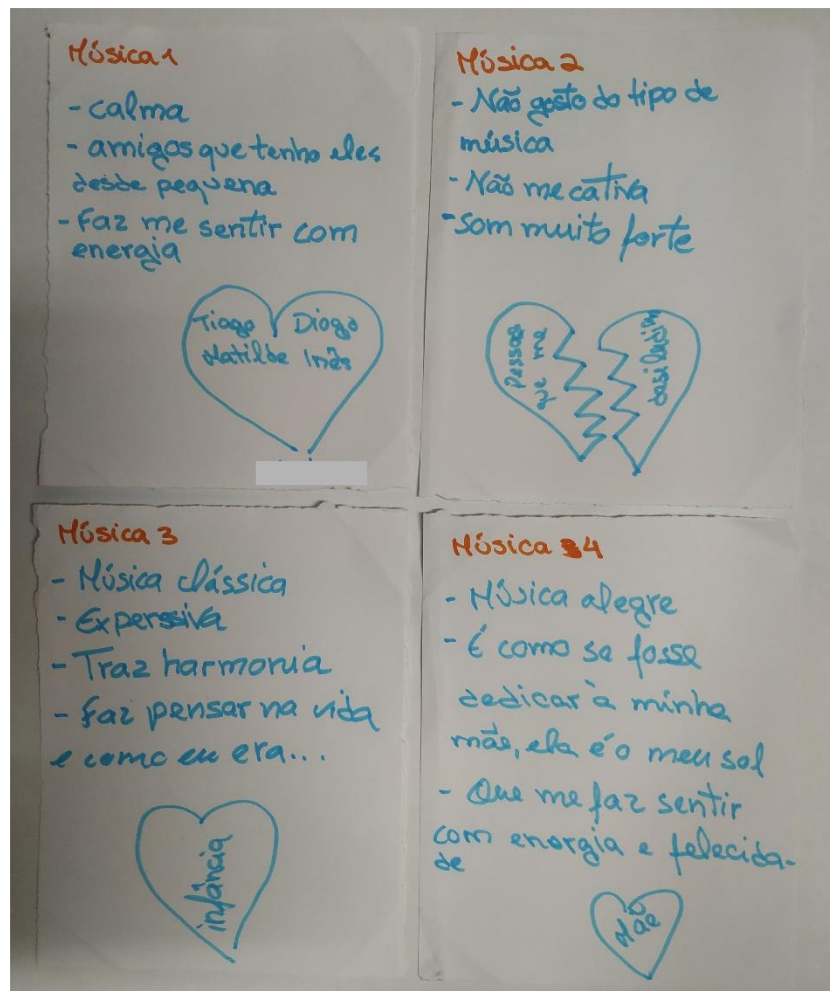 Música 1
- calma
- amigos que tenho eles
desde pequena
- Faz me sentir com
energia
Tiago Diogo
Matilde Inês
Música 2
- Não gosto do tipo de
música
- Não me cativa
- Som muito forte
Pessoas
que me
Música 3
- Música clássica
- Experssiva
- Traz harmonia
- Faz pensar na vida
e como eu era...
infância
Música 4
- Música alegre
- É como se fosse
dedicar à minha
mãe, ela é o meu sol
- Que me faz sentir
com energia e felecida-
de
Mãe